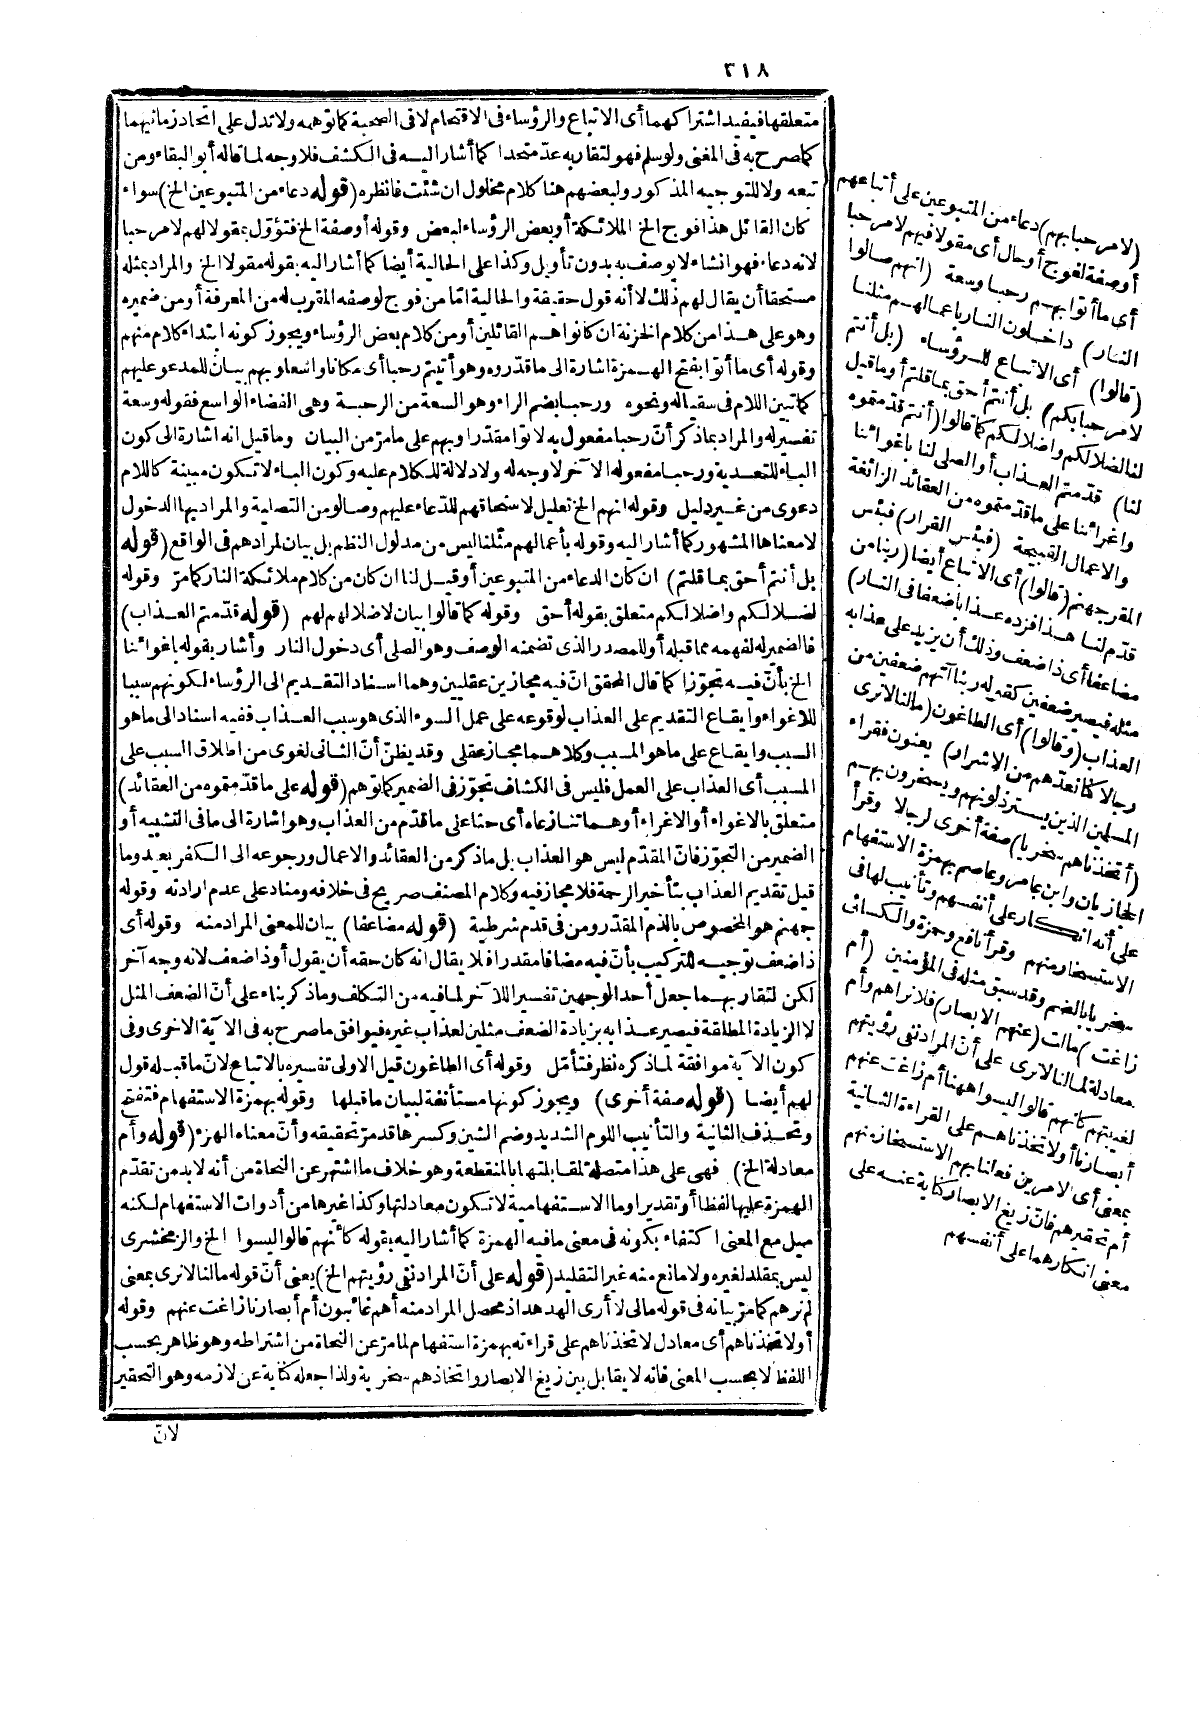 ٣١٨
متعلقها فيفيد اشتراكهما أى الاتباع والرؤساء فى الاقتحام لا فى الصحبة كما توهمه ولا تدل على اتحاد زمانيهما
كما صرح به فى المغنى ولو سلم فهو لتقاربه عدّ متحدا كما أشار اليه فى الكشف فلا وجه لما قاله أبو البقاء ومن
تبعه ولا للتوجيه المذكور ولبعضهم هنا كلام مخلول ان شئت فانظره (قوله دعاء من المتبوعين الخ) سواء
كان القائل هذا فوج الخ الملائكة أو بعض الرؤساء لبعض وقوله أو صفة الخ فتؤوّل بمقولا لهم لا مرحبا
لانه دعاء فهو انشاء لا يوصف به بدون تأويل وكذا على الحالية أيضا كما أشار اليه بقوله مقولا الخ والمراد بمثله
مستحقا أن يقال لهم ذلك لا أنه قول حقيقة والحالية امّا من فوج لوصفه المقرب له من المعرفة أو من ضميره
وهو على هذا من كلام الخزنة ان كانوا هم القائلين أو من كلام بعض الرؤساء ويجوز كونه ابتداء كلام منهم
وقوله أى ما أتوا بفتح الهمزة اشارة الى ما قدّروه وهو أتيتم رحبا أى مكانا واسعا وبهم بيان للمدعو عليهم
كما تبين اللام فى سقيا له ونحوه ورحبا بضم الراء وهو السعة من الرحبة وهى الفضاء الواسع فقوله وسعة
تفسير له والمراد بما ذكر أنّ رحبا مفعول به لاتوا مقدرا وبهم على ما مرّ من البيان وما قيل انه اشارة الى كون
الباء للتعدية ورحبا مفعوله الآخر لا وجه له ولا دلالة للكلام عليه وكون الباء لا تكون مبينة كاللام
دعوى من غير دليل وقوله انهم الخ تعليل لاستحقاقهم للدّعاء عليهم وصالو من التصلية والمراد بها الدخول
لا معناها المشهور كما أشار اليه وقوله بأعمالهم مثلنا ليس من مدلول النظم بل بيان لمرادهم فى الواقع (قوله
بل أنتم أحق بما قلتم) ان كان الدعاء من المتبوعين أو قيل لنا ان كان من كلام ملائكة النار كما مرّ وقوله
لضلالكم واضلالكم متعلق بقوله أحق وقوله كما قالوا بيان لاضلالهم لهم (قوله قدّمتم العذاب)
فالضمير له لفهمه مما قبله أو للمصدر الذى تضمنه الوصف وهو الصلى أى دخول النار وأشار بقوله باغوائنا
الخ بأنّ فيه تجوّزا كما قال المحقق انّ فيه مجازين عقليين وهما اسناد التقديم الى الرؤساء لكونهم سببا
للاغواء وايقاع التقديم على العذاب لوقوعه على عمل السوء الذى هو سبب العذاب ففيه اسناد الى ما هو
السبب وايقاع على ما هو المسبب وكلاهما مجاز عقلى وقد يظنّ أنّ الثانى لغوى من اطلاق السبب على
المسبب أى العذاب على العمل فليس فى الكشاف تجوّز فى الضمير كما توهم (قوله على ما قدّمتموه من العقائد)
متعلق بالاغواء أو الاغراء أو هما تنازعاه أى حثا على ما قدّم من العذاب وهو اشارة الى ما فى التشبيه أو
الضمير من التجوّز فانّ المقدّم ليس هو العذاب بل ما ذكر من العقائد والاعمال ورجوعه الى الكفر بعيد وما
قيل تقديم العذاب بتأخير الرحمة فلا مجاز فيه وكلام المصنف صريح فى خلافه ومناد على عدم ارادته وقوله
جهنم هو المخصوص بالذم المقدّر ومن فى قدم شرطية (قوله مضاعفا) بيان للمعنى المراد منه وقوله أى
ذا ضعف توجيه للتركيب بأنّ فيه مضافا مقدرا فلا يقال انه كان حقه أن يقول أو ذا ضعف لانه وجه آخر
لكن لتقاربهما جعل أحد الوجهين تفسير اللآخر لما فيه من التكلف وما ذكر بناء على أنّ الضعف المثل
لا الزيادة المطلقة فيصير عذابه بزيادة الضعف مثلين لعذاب غيره فيوافق ما صرح به فى الآية الاخرى وفى
كون الآية موافقة لما ذكره نظر فتأمّل وقوله أى الطاغون قيل الاولى تفسيره بالاتباع لانّ ما قبله قول
لهم أيضا (قوله صفة أخرى) ويجوز كونها مستأنفة لبيان ما قبلها وقوله بهمزة الاستفهام فتفتح
وتحذف الثانية والتأنيب اللوم الشديد وضم الشين وكسرها قد مرّ تحقيقه وأنّ معناه الهزء (قوله وأم
معادلة الخ) فهى على هذا متصلة لمقابلتها بالمنقطعة وهو خلاف ما اشتهر عن النحاة من أنه لا بد من تقدّم
الهمزة عليها لفظا أو تقديرا وما الاستفهامية لا تكون معادلتها وكذا غيرها من أدوات الاستفهام لكنه
ميل مع المعنى اكتفاء بكونه فى معنى ما فيه الهمزة كما أشار اليه بقوله كأنهم قالوا ليسوا الخ والزمخشرى
ليس بمقلد لغيره ولا مانع منه غير التقليد (قوله على أنّ المراد نفى رؤيتهم الخ) يعنى أنّ قوله ما لنا لا نرى بمعنى
لم نرهم كما مرّ بيانه فى قوله مالى لا أرى الهدهد اذ محصل المراد منه أهم غائبون أم أبصارنا زاغت عنهم وقوله
أو لاتخذناهم أى معادل لاتخذناهم على قراءته بهمزة استفهام لما مرّ عن النحاة من اشتراطه وهو ظاهر بحسب
اللفظ لا بحسب المعنى فانه لا يقابل بين زيغ الابصار واتخاذهم سخرية ولذا جعله كناية عن لازمه وهو التحقير
لانّ
(لا مرحبا بهم) دعاء من المتبوعين على أتباعهم
أو صفة لفوج أو حال أى مقولا فيهم لا مرحبا
أى ما أتوا بهم رحبا وسعة (انهم صالوا
النار) داخلون النار باعمالهم مثلنا
(قالوا) أى الاتباع للرؤساء (بل أنتم
لا مرحبا بكم) بل أنتم أحق بما قلتم أو ما قيل
لنا لضلالكم واضلالكم كما قالوا (أنتم قدّمتموه
لنا) قدّمتم العذاب أو الصلى لنا باغوائنا
واغرائنا على ما قدّمتموه من العقائد الزائغة
والاعمال القبيحة (فبئس القرار) فبئس
المقر جهنم (قالوا) أى الاتباع أيضا (ربنا من
قدّم لنا هذا فزده عذابا ضعفا فى النار)
مضاعفا أى ذا ضعف وذلك أن يزيد على عذابه
مثله فيصير ضعفين كقوله ربنا آتهم ضعفين من
العذاب (وقالوا) أى الطاغون (ما لنا لا نرى
رجالا كنا نعدّهم من الاشرار) يعنون فقراء
المسلمين الذين يسترذلونهم ويسخرون بهم
(أتخذناهم سخريا) صفة أخرى لرجالا وقرأ
الحجازيان وابن عامر وعاصم بهمزة الاستفهام
على أنه انكار على أنفسهم وتأنيب لها فى
الاستسخار منهم وقرأ نافع وحمزة والكسائى
سخريا بالضم وقد سبق مثله فى المؤمنين (أم
زاغت) مالت (عنهم الابصار) فلا نراهم وأم
معادلة لما لنا لا نرى على أنّ المراد نفى رؤيتهم
لغيبتهم كانهم قالوا ليسوا ههنا أم زاغت عنهم
أبصارنا أو لاتخذناهم على القراءة الثانية
بمعنى أى الامرين فعلنا بهم الاستسخار منهم
أم تحقيرهم فانّ زيغ الابصار كناية عنه على
معنى انكارهما على أنفسهم